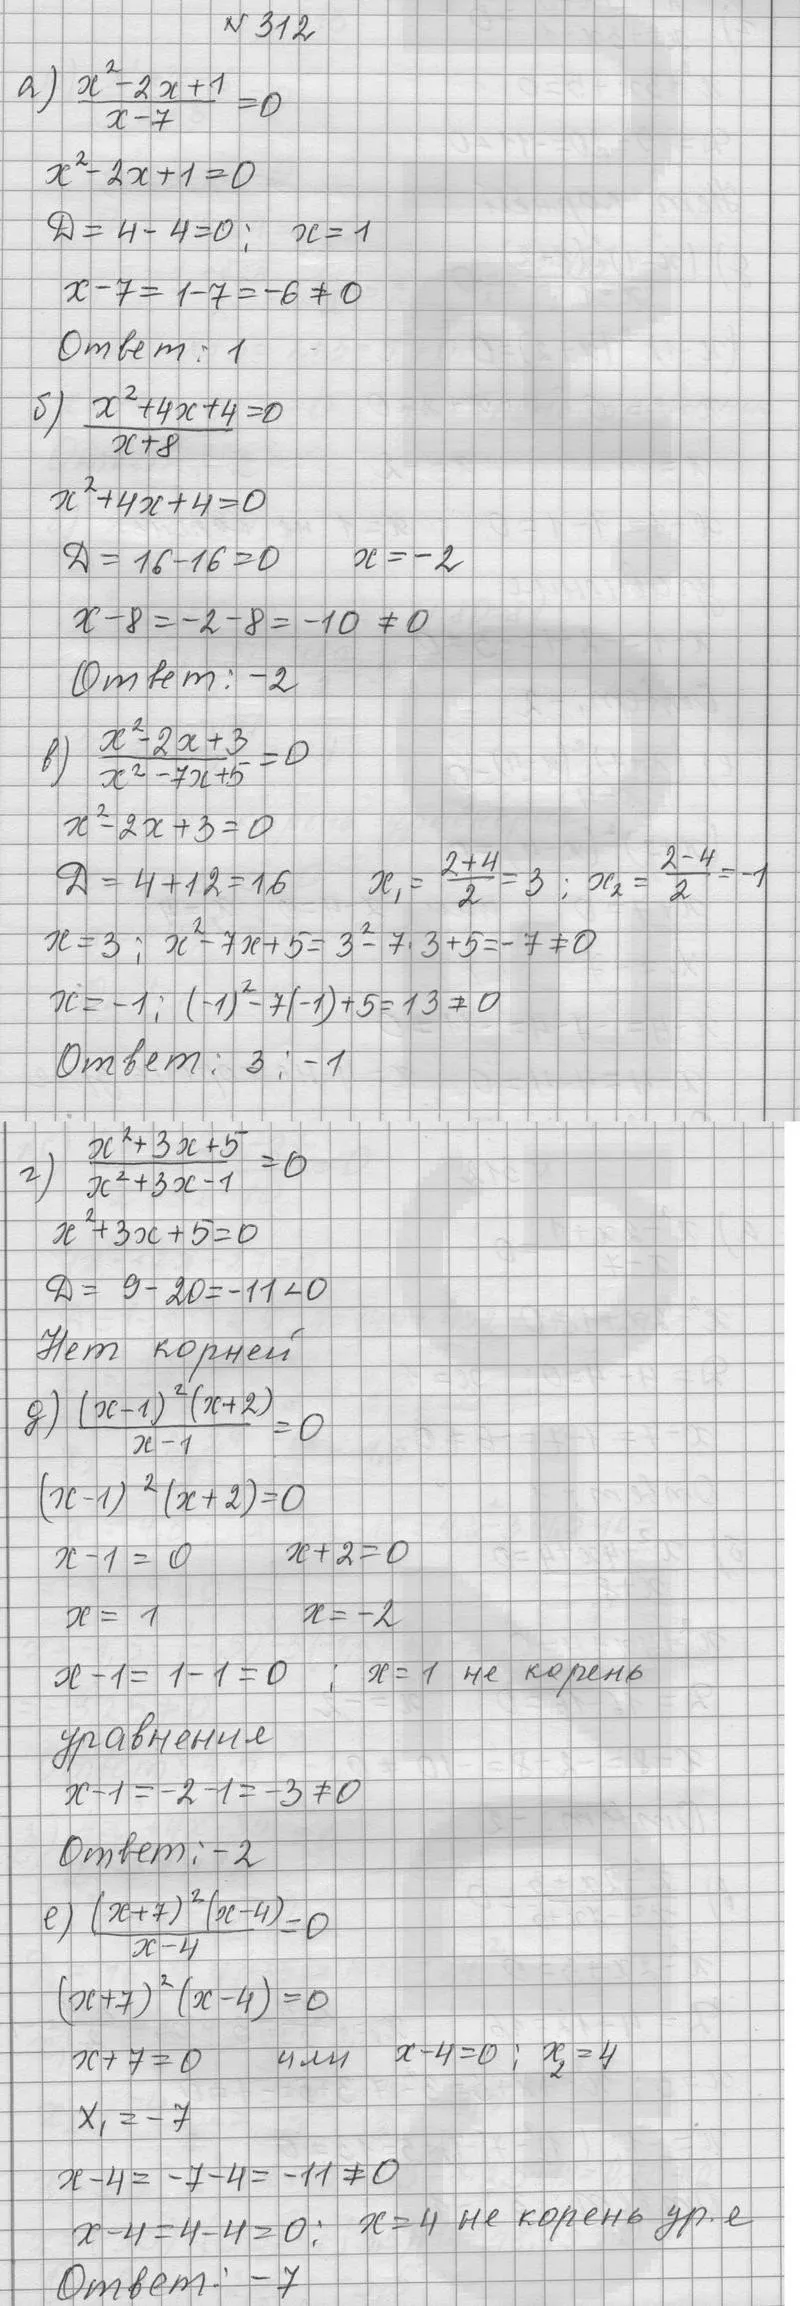 №312
а) (x²-2x+1)/(x-7) =0
x²-2x+1=0
Д=4-4=0; x=1
x-7=1-7=-6≠0
Ответ: 1
б) (x²+4x+4)/(x+8) =0
x²+4x+4=0
Д=16-16=0 x=-2
x-8=-2-8=-10≠0
Ответ: -2
в) (x²-2x+3)/(x²-7x+5) =0
x²-2x+3=0
Д=4+12=16 x₁=(2+4)/2=3; x₂=(2-4)/2=-1
x=3; x²-7x+5=3²-7·3+5=-7≠0
x=-1; (-1)²-7(-1)+5=13≠0
Ответ: 3; -1
г) (x²+3x+5)/(x²+3x-1) =0
x²+3x+5=0
Д= 9-20=-11<0
Нет корней
д) (x-1)²(x+2)/(x-1) =0
(x-1)²(x+2)=0
x-1=0 x+2=0
x=1 x=-2
x-1=1-1=0; x=1 не корень
уравнения
x-1=-2-1=-3≠0
Ответ: -2
е) (x+7)²(x-4)/(x-4) =0
(x+7)²(x-4)=0
x+7=0 или x-4=0; x₂=4
x₁=-7
x-4=-7-4=-11≠0
x-4=4-4=0; x=4 не корень ур.е
Ответ: -7